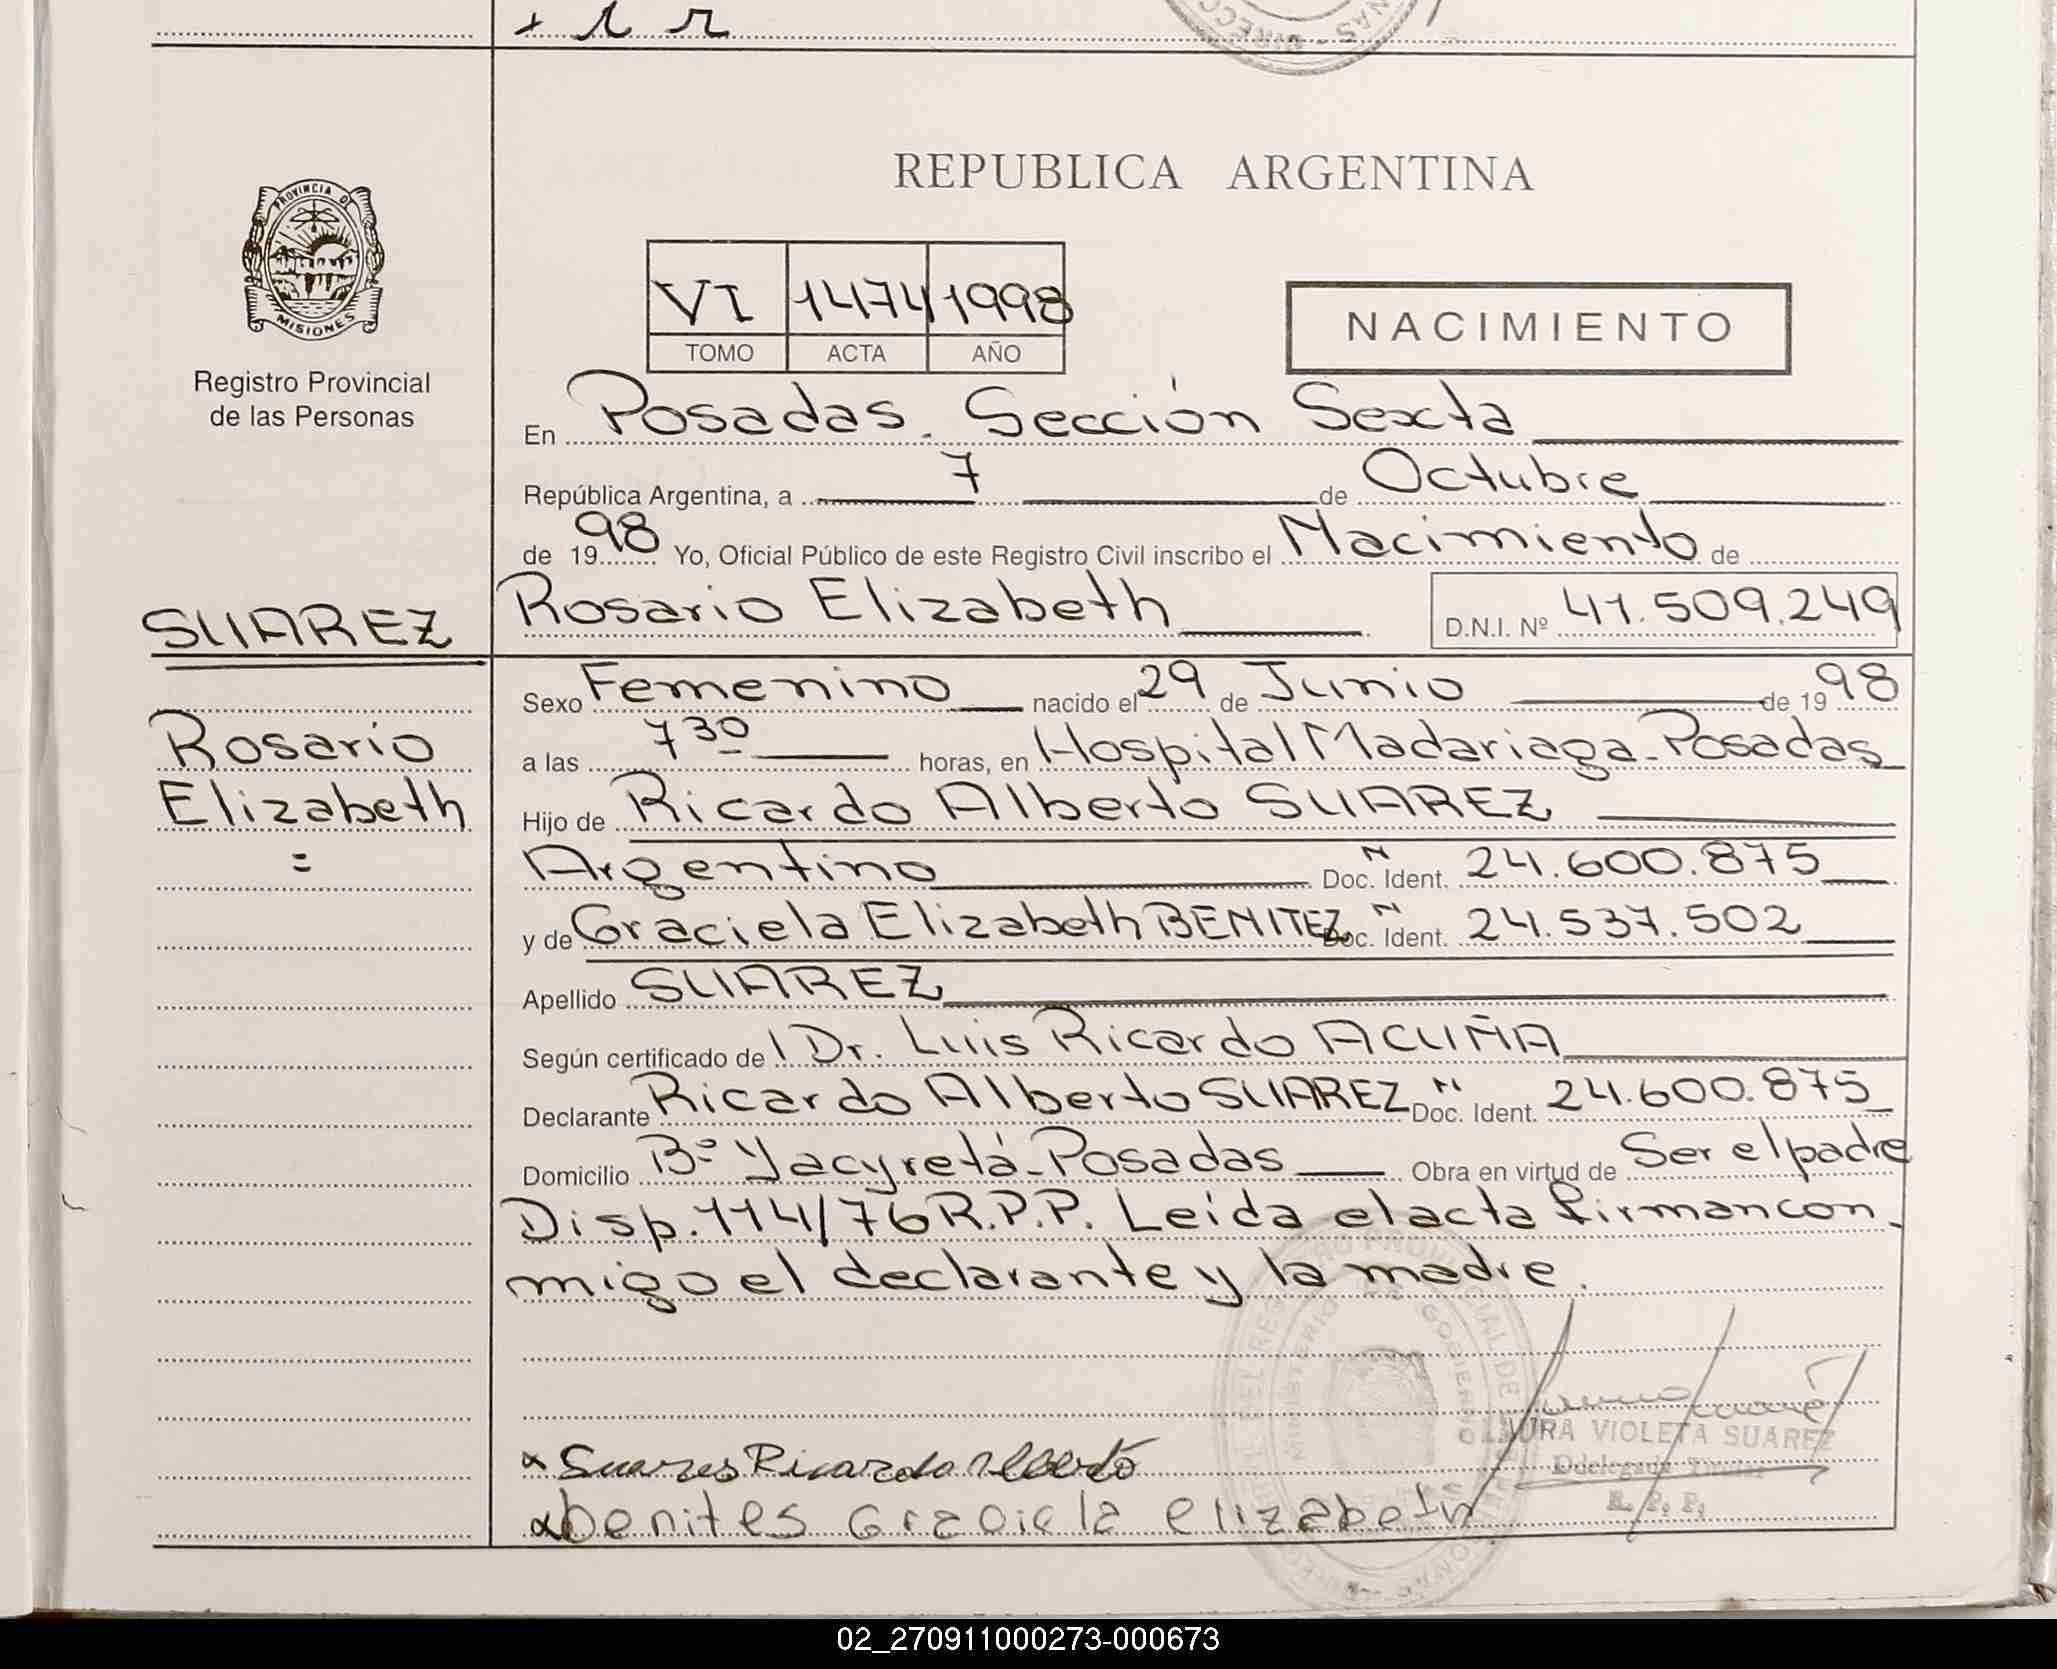 REPUBLICA ARGENTINA
PROVINCIA DE
MISIONES
Registro Provincial
de las Personas
VI 1474 1998
TOMO ACTA AÑO
NACIMIENTO
En Posadas. Sección Sexta
República Argentina, a 7 de Octubre
de 1998 Yo, Oficial Público de este Registro Civil inscribo el Nacimiento de
SUAREZ
Rosario Elizabeth D.N.I. Nº 41.509.249
Sexo Femenino nacido el 29 de Junio de 1998
Rosario
a las 7 30 horas, en Hospital Madariaga-Posadas
Elizabeth
Hijo de Ricardo Alberto SUAREZ
=
Argentino Doc. N Ident. 24.600.875
y de Graciela Elizabeth BENITEZ Doc. N Ident. 24.537.502
Apellido SUAREZ
Según certificado de Dr. Luis Ricardo ACUÑA
Declarante Ricardo Alberto SUAREZ Doc. N Ident. 24.600.875
Domicilio Bº Yacyretá-Posadas Obra en virtud de Ser el padre
Disp. 114/76 R.P.P. Leída el acta firman con-
migo el declarante y la madre.
LAURA VIOLETA SUAREZ
Ddelegada Titular
R. P. P.
x Suares Ricardo Alberto
x benites Graciela elizabeth
02_270911000273-000673